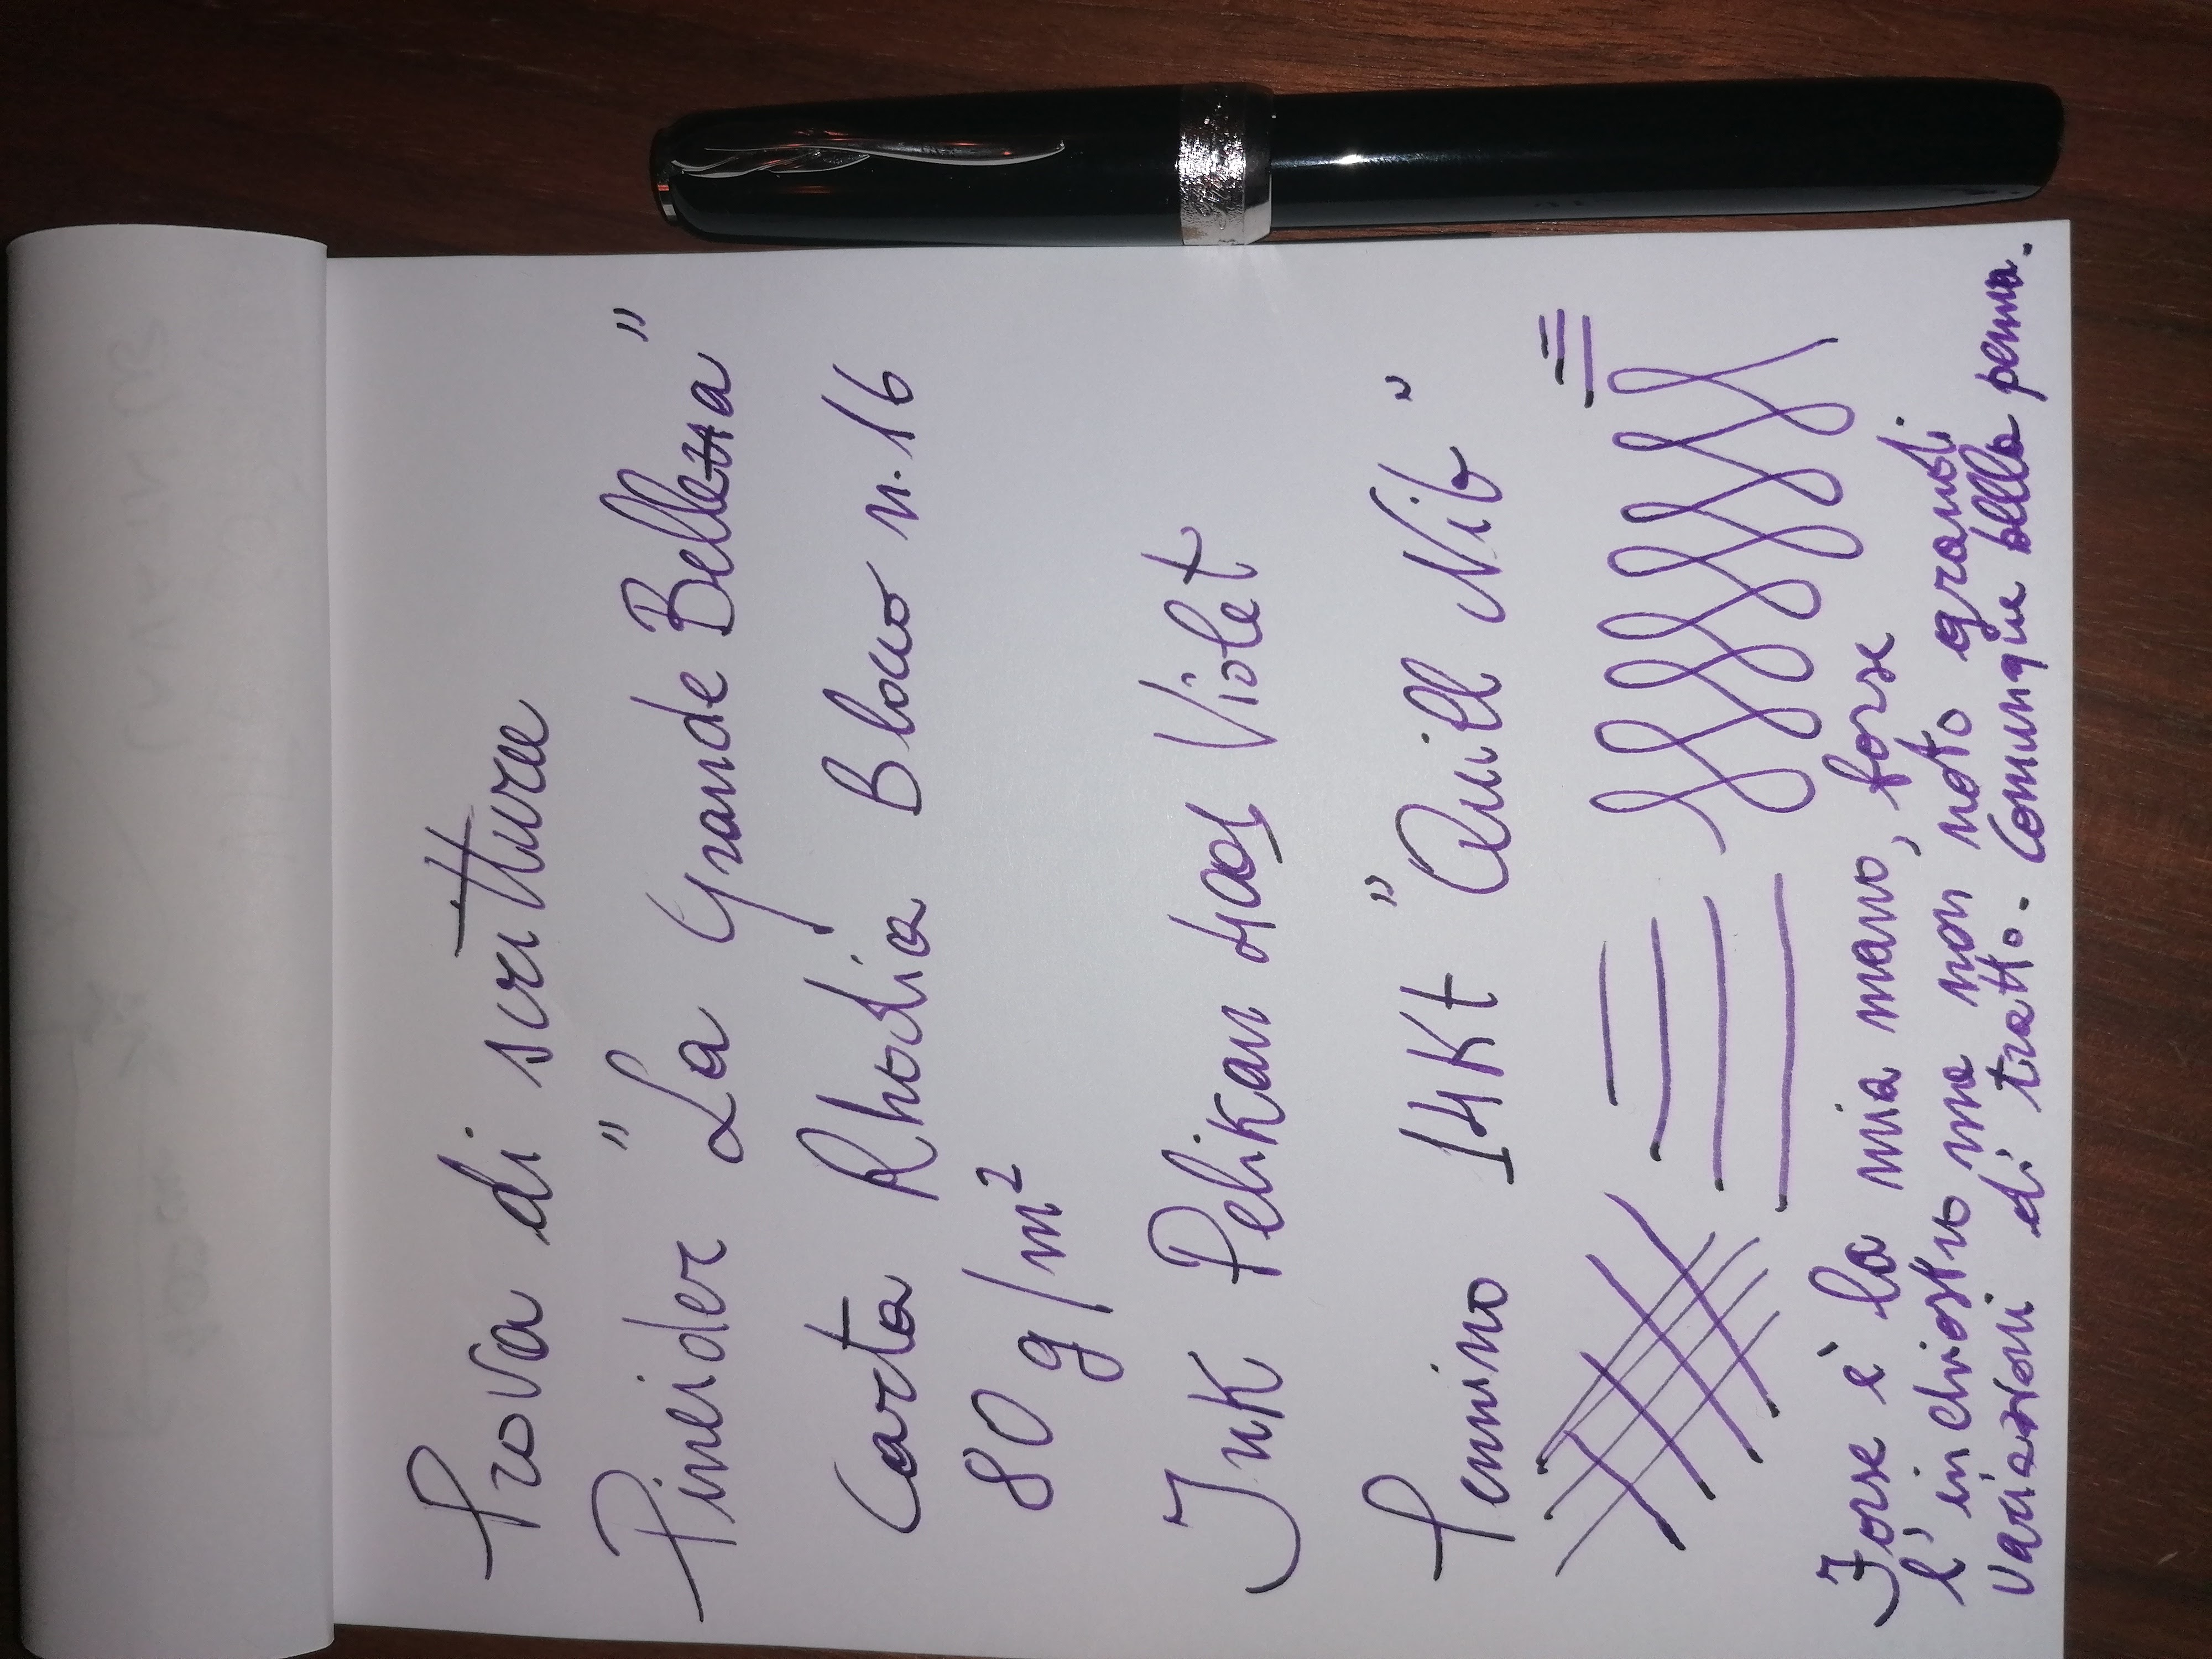 Prova di scrittura
Pineider "La Grande Bellezza"
Carta Rhodia Blocco n.16
80 g/m²
Ink Pelikan 4001 Violet
Pennino 14Kt "Quill Nib"
Forse è la mia mano, forse
l'inchiostro ma non noto grandi
variazioni di tratto. Comunque bella penna.